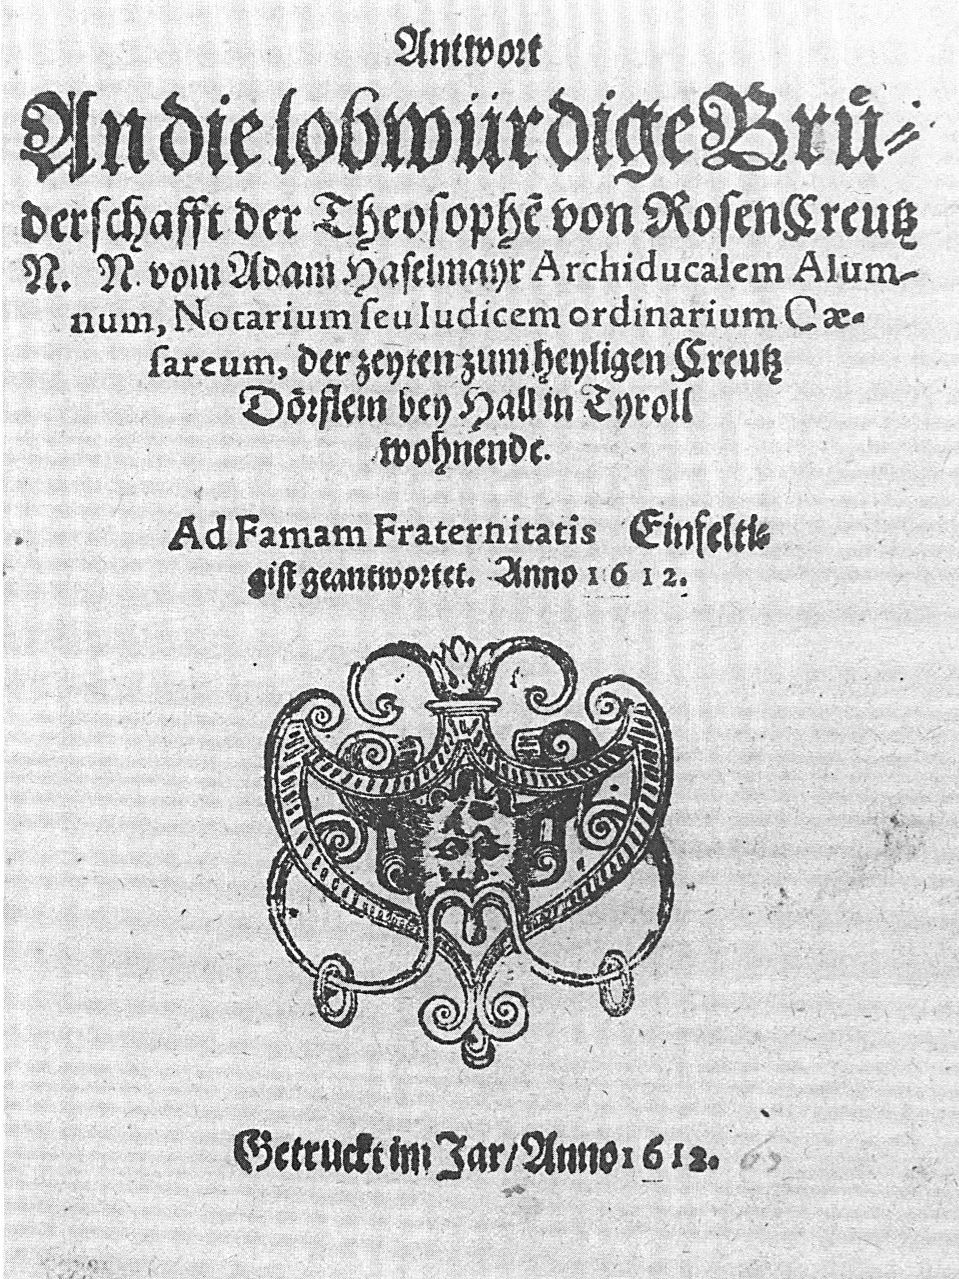 Antwort
An die lobwürdige Brü⸗
derschafft der Theosophē von RosenCreutz
N. N. vom Adam Haselmayr Archiducalem Alum-
num, Notarium seu Iudicem ordinarium Cæ-
sareum, der zeyten zum heyligen Creutz
Dörflein bey Hall in Tyroll
wohnende.
Ad Famam Fraternitatis Einfeltig⸗
gist geantwortet. Anno 1612.
Getruckt im Jar/Anno 1612.